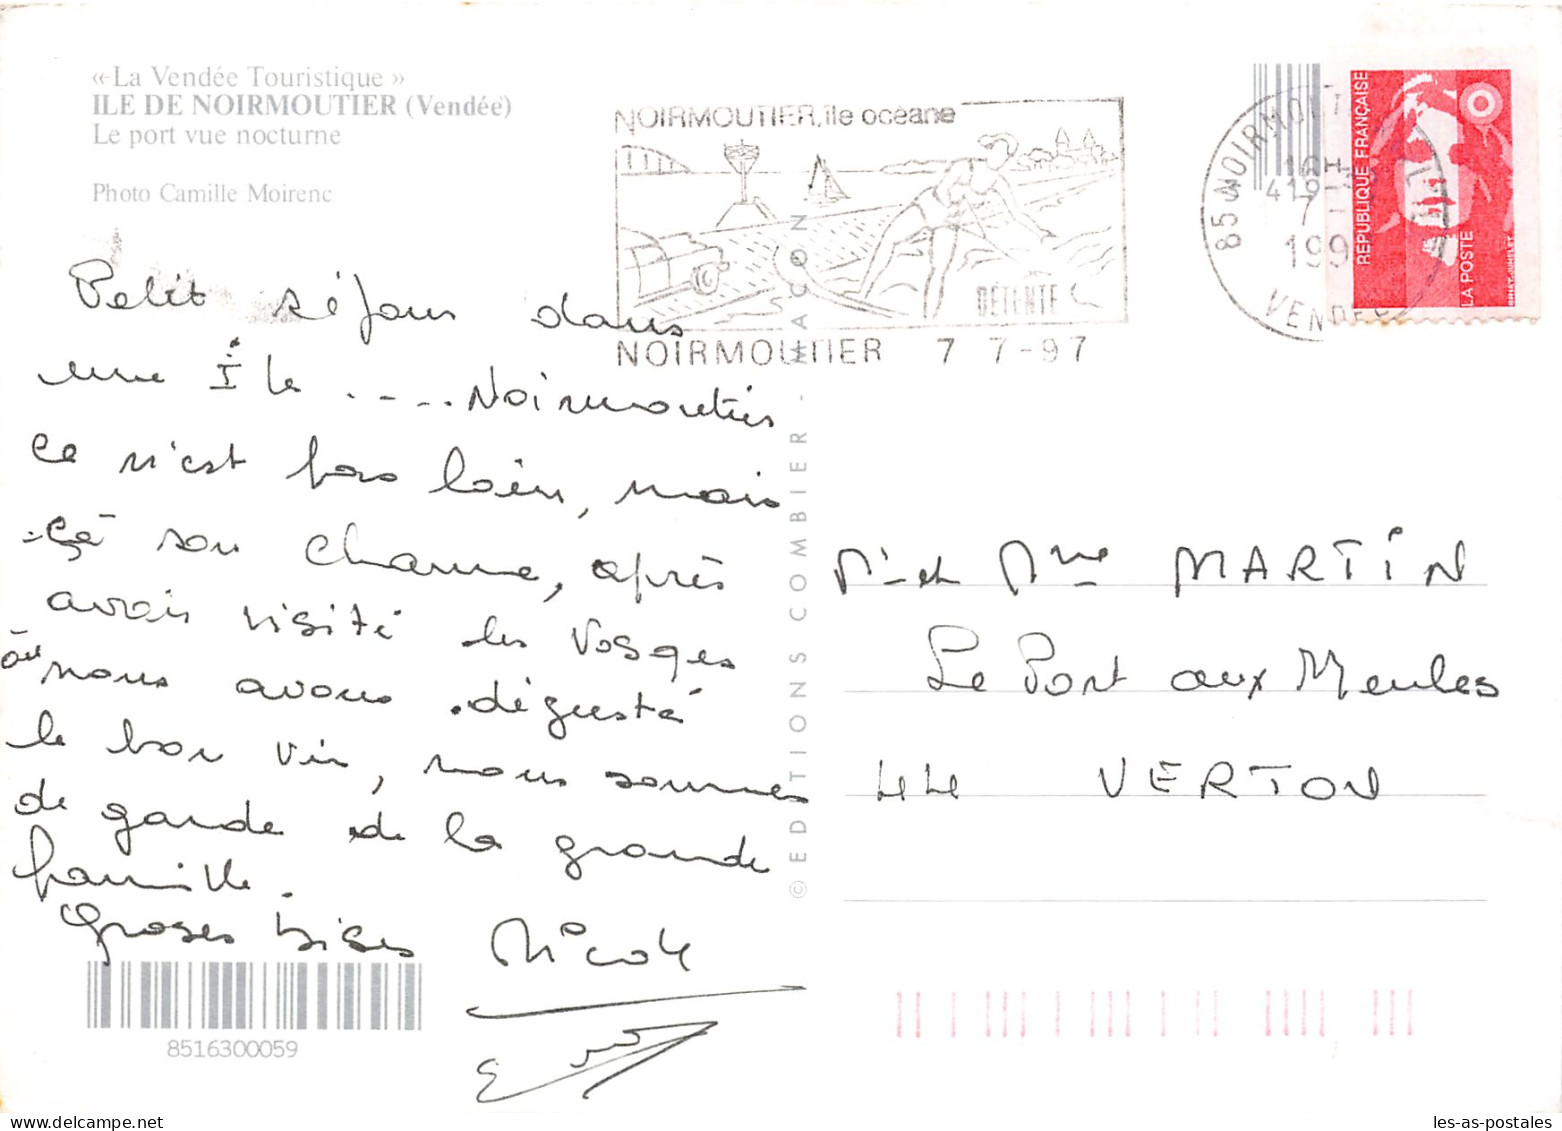 «La Vendée Touristique»
ILE DE NOIRMOUTIER (Vendée)
Le port vue nocturne
Photo Camille Moirenc
NOIRMOUTIER, île océane
DÉTENTE
NOIRMOUTIER 7 7-97
85 NOIRMOUT
7
199
VENDEE
419
REPUBLIQUE FRANÇAISE
LA POSTE
Petit séjour dans
une Île ....Noirmoutiers
ce n'est pas loin, mais
çà son charme, après
avoir visité les Vosges
où nous avons dégusté
le bon vin, nous sommes
de garde de la grande
famille.
Groses bises Nicole
© EDITIONS COMBIER - MACON
Mr et Mme MARTIN
Le Port aux Meules
44 VERTON
8516300059
les-as-postales